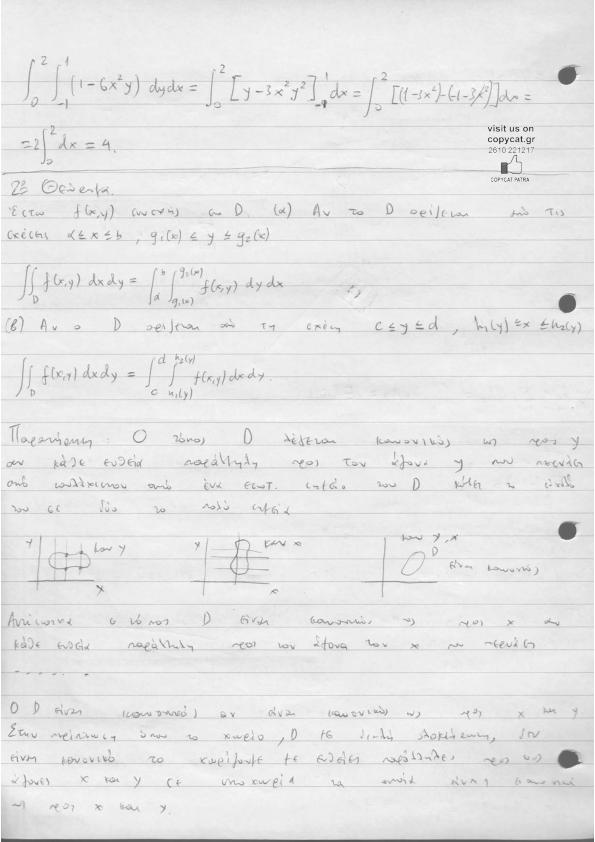 ∫₀² ∫₋₁¹ (1-6x²y) dydx = ∫₀² [y-3x²y²]₋₁¹ dx = ∫₀² [(1-3x²)-(-1-3x²)]dx =
= 2∫₀² dx = 4.
visit us on
copycat.gr
2610 221217
COPYCAT PATRA
2º Θεώρημα.
Έστω f(x,y) συνεχής στο D. (α) Αν το D ορίζεται από τις
σχέσεις α ≤ x ≤ b, g₁(x) ≤ y ≤ g₂(x)
∬_D f(x,y) dxdy = ∫_α^b ∫_{g₁(x)}^{g₂(x)} f(x,y) dydx
(β) Αν ο D ορίζεται από τη σχέση c ≤ y ≤ d, h₁(y) ≤ x ≤ h₂(y)
∬_D f(x,y) dxdy = ∫_c^d ∫_{h₁(y)}^{h₂(y)} f(x,y) dxdy.
Παρατήρηση: Ο τόπος D λέγεται κανονικός ως προς y
αν κάθε ευθεία παράλληλη προς τον άξονα y που περνάει
από τουλάχιστον από ένα εσωτ. σημείο του D κόβει το σύνορό
του σε δύο το πολύ σημεία
y καν y x
y καν x x
καν y, x D είναι κανονικός
Αντίστοιχα ο τόπος D είναι κανονικός ως προς x αν
κάθε ευθεία παράλληλη προς τον άξονα του x που περνάει
.......
Ο D είναι κανονικός αν είναι κανονικός ως προς x και y
Στην περίπτωση όπου το χωρίο, D σε διπλή ολοκλήρωση, δεν
είναι κανονικό το χωρίζουμε με ευθείες παράλληλες προς τους
άξονες x και y σε υποχωρία τα οποία είναι κανονικά
ως προς x και y.